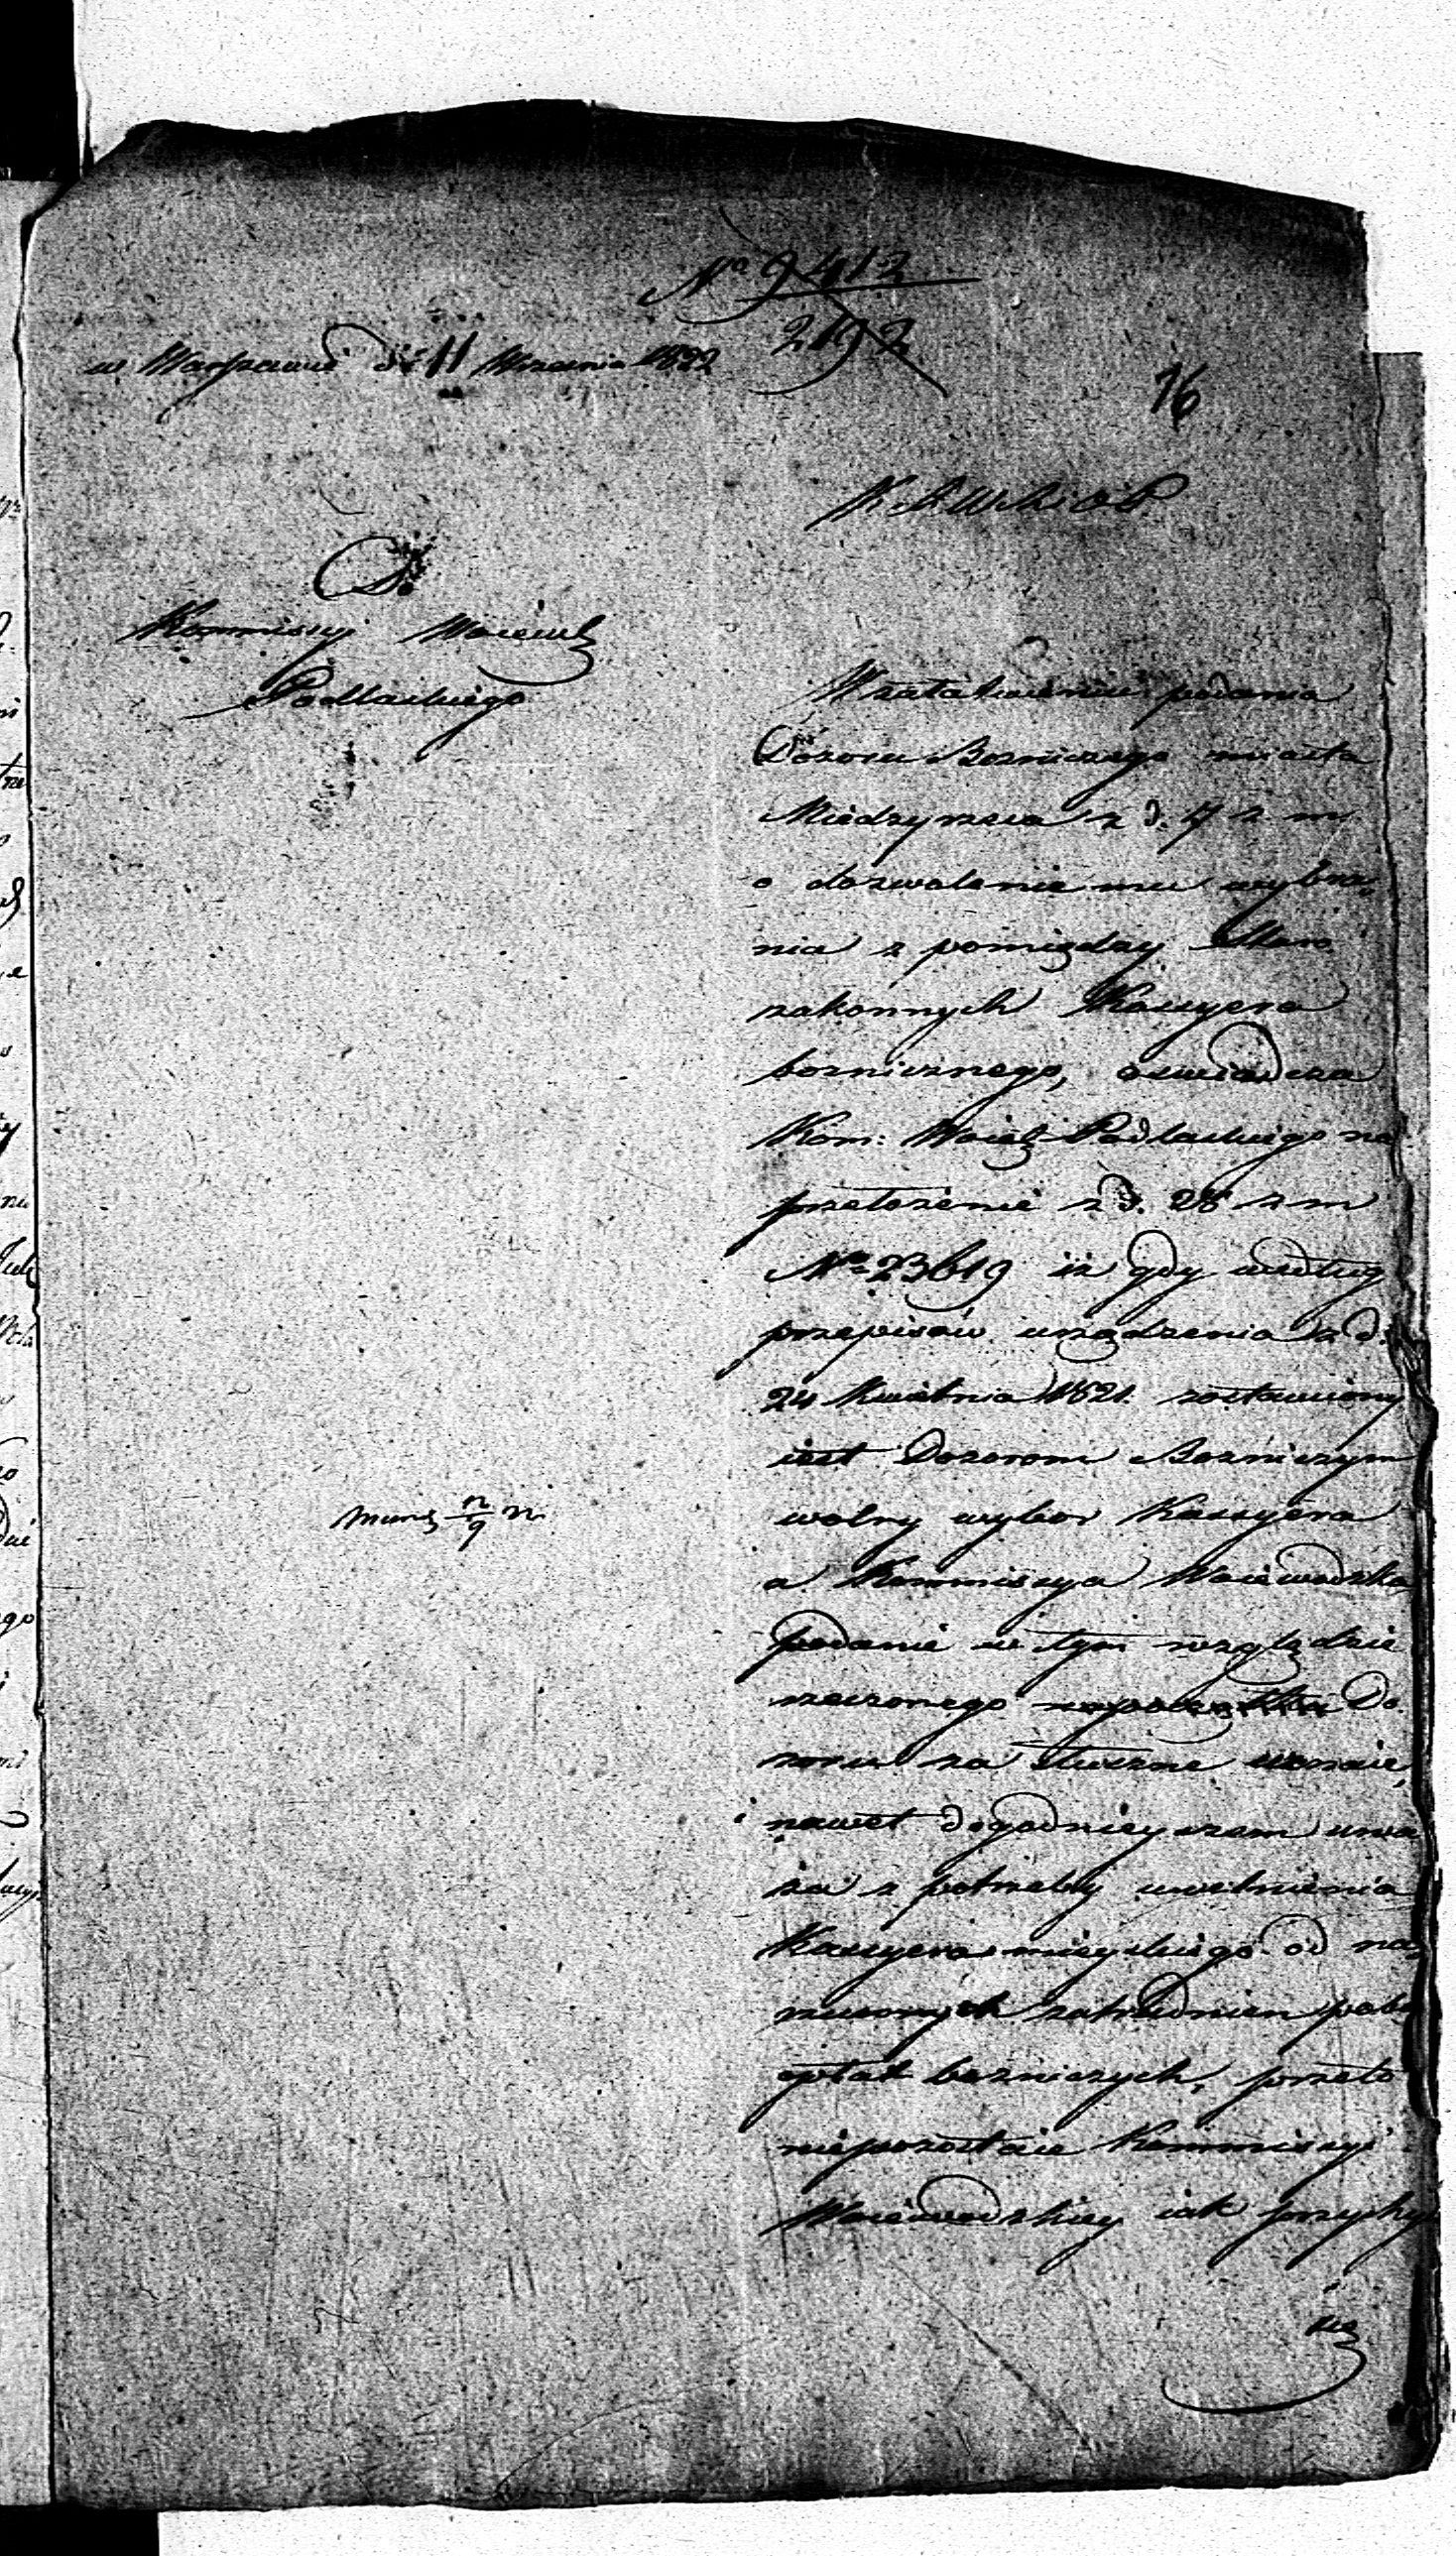 No 9412
2192
w Warszawie d: 11 Wrzesnia 1822
16
K R W R i O P
Do
Kommissyi Woiewz
Podlaskiego
W załatwieniu podania
Dozoru Bozniczego miasta
Miedzyrzeca z d. 7 z m
o dozwolenie mu wybra-
nia z pomiędzy Staro
zakonnych Kassyera
boznicznego, oswiadcza
Kom: Woiewz Podlaskiego na
przełozenie z d. 28 z m
No 23619 iz gdy według
przepisów urządzenia z d.
24 Kwietnia 1821. zostawiony
iest Dozorom Bozniczym
wolny wybor Kassyera
a Kommissya Woiewodzka
podanie w tym względzie
rzeczonego Do
zoru za słuszne uznaie,
i nawet dogodnieyszem uwa
za z potrzeby uwolnienia
Kassyera mieyskiego od na
zatrudnien
opłat bozniczych, przeto
niepozostaie Kommissyi
Woiewodzkiey iak przychy